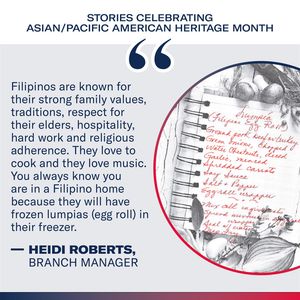 STORIES CELEBRATING
ASIAN/PACIFIC AMERICAN HERITAGE MONTH
“
Filipinos are known for
their strong family values,
traditions, respect for
their elders, hospitality,
hard work and religious
adherence. They love to
cook and they love music.
You always know you
are in a Filipino home
because they will have
frozen lumpias (egg roll) in
their freezer.
— HEIDI ROBERTS,
BRANCH MANAGER
Lumpia
Filipino Egg Roll
Ground pork
Green Onions, chopped
Water Chestnuts, diced
Garlic, minced
shredded carrots
Soy Sauce
Salt + Pepper
Egg roll wrapper